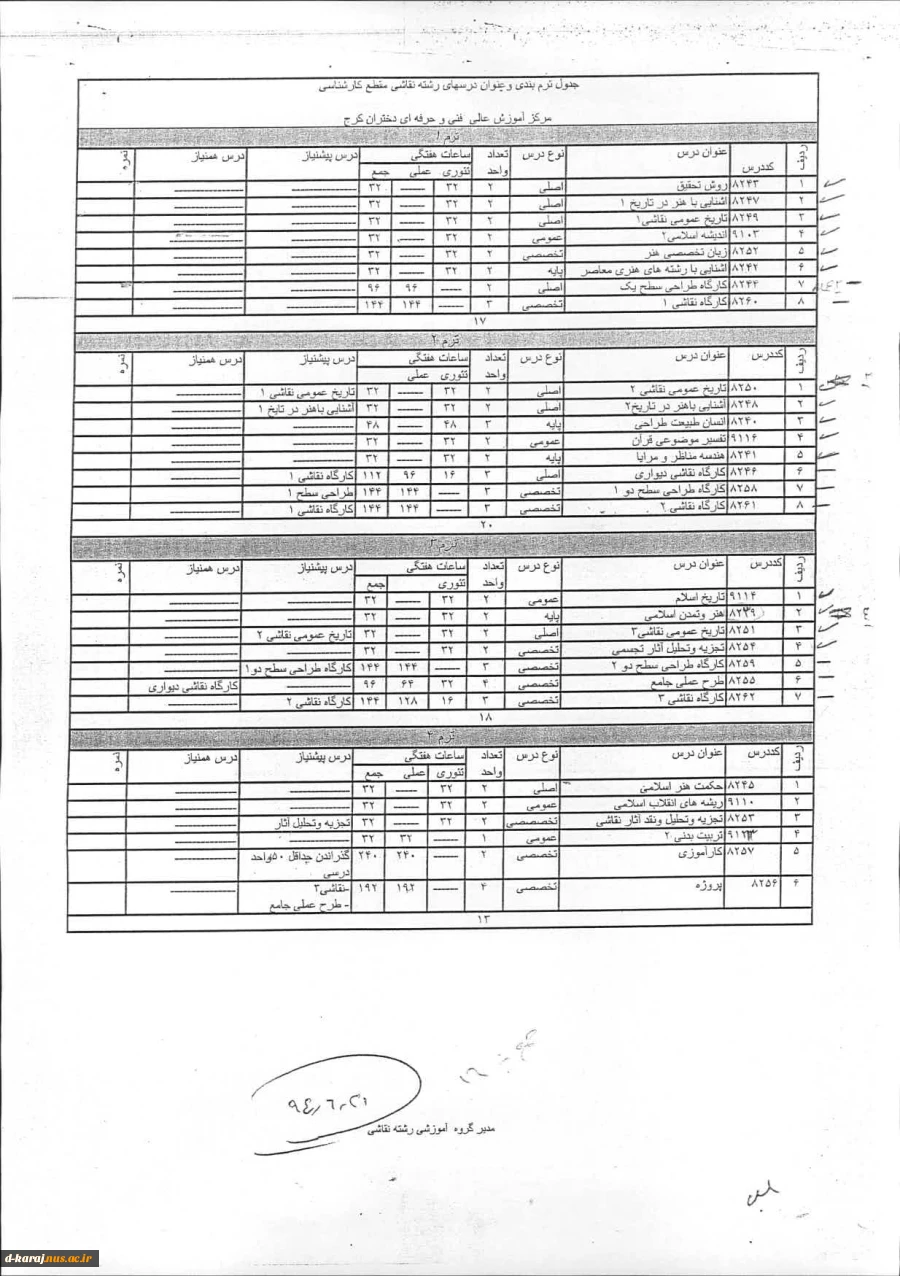 جدول ترم بندی وعنوان درسهای رشته نقاشی مقطع کارشناسی
مرکز آموزش عالی فنی و حرفه ای دختران کرج
ترم ۱
ردیف کددرس عنوان درس نوع درس تعداد واحد ساعات هفتگی تئوری عملی جمع درس پیشنیاز درس همنیاز نمره
۱ ۸۲۴۳ روش تحقیق اصلی ۲ ۳۲ ---- ۳۲
۲ ۸۲۴۷ آشنایی با هنر در تاریخ ۱ اصلی ۲ ۳۲ ---- ۳۲
۳ ۸۲۴۹ تاریخ عمومی نقاشی۱ اصلی ۲ ۳۲ ---- ۳۲
۴ ۹۱۰۳ اندیشه اسلامی۲ عمومی ۲ ۳۲ ---- ۳۲
۵ ۸۲۵۲ زبان تخصصی هنر تخصصی ۲ ۳۲ ---- ۳۲
۶ ۸۲۴۲ آشنایی با رشته های هنری معاصر پایه ۲ ۳۲ ---- ۳۲
۷ ۸۲۴۴ کارگاه طراحی سطح یک اصلی ۲ ---- ۹۶ ۹۶
۸ ۸۲۶۰ کارگاه نقاشی ۱ تخصصی ۳ ---- ۱۴۴ ۱۴۴
۱۷
ترم ۲
ردیف کددرس عنوان درس نوع درس تعداد واحد ساعات هفتگی تئوری عملی درس پیشنیاز درس همنیاز نمره
۱ ۸۲۵۰ تاریخ عمومی نقاشی ۲ اصلی ۲ ۳۲ ---- ۳۲ تاریخ عمومی نقاشی ۱
۲ ۸۲۴۸ آشنایی باهنر در تاریخ۲ اصلی ۲ ۳۲ ---- ۳۲ آشنایی باهنر در تایخ ۱
۳ ۸۲۴۰ انسان طبیعت طراحی پایه ۳ ۴۸ ---- ۴۸
۴ ۹۱۱۶ تفسیر موضوعی قرآن عمومی ۲ ۳۲ ---- ۳۲
۵ ۸۲۴۱ هندسه مناظر و مرایا پایه ۲ ۳۲ ---- ۳۲
۶ ۸۲۴۶ کارگاه نقاشی دیواری اصلی ۳ ۱۶ ۹۶ ۱۱۲ کارگاه نقاشی ۱
۷ ۸۲۵۸ کارگاه طراحی سطح دو ۱ تخصصی ۳ ---- ۱۴۴ ۱۴۴ طراحی سطح ۱
۸ ۸۲۶۱ کارگاه نقاشی ۲ تخصصی ۳ ---- ۱۴۴ ۱۴۴ کارگاه نقاشی ۱
۲۰
ترم ۳
ردیف کددرس عنوان درس نوع درس تعداد واحد ساعات هفتگی تئوری جمع درس پیشنیاز درس همنیاز نمره
۱ ۹۱۱۴ تاریخ اسلام عمومی ۲ ۳۲ ---- ۳۲
۲ ۸۲۳۹ هنر وتمدن اسلامی پایه ۲ ۳۲ ---- ۳۲
۳ ۸۲۵۱ تاریخ عمومی نقاشی۳ اصلی ۲ ۳۲ ---- ۳۲ تاریخ عمومی نقاشی ۲
۴ ۸۲۵۴ تجزیه وتحلیل آثار تجسمی تخصصی ۲ ۳۲ ---- ۳۲
۵ ۸۲۵۹ کارگاه طراحی سطح دو ۲ تخصصی ۳ ---- ۱۴۴ ۱۴۴ کارگاه طراحی سطح دو۱
۶ ۸۲۵۵ طرح عملی جامع تخصصی ۴ ۳۲ ۶۴ ۹۶ کارگاه نقاشی دیواری
۷ ۸۲۶۲ کارگاه نقاشی ۳ تخصصی ۳ ۱۶ ۱۲۸ ۱۴۴ کارگاه نقاشی ۲
۱۸
ترم ۴
ردیف کددرس عنوان درس نوع درس تعداد واحد ساعات هفتگی تئوری عملی جمع درس پیشنیاز درس همنیاز نمره
۱ ۸۲۴۵ حکمت هنر اسلامی اصلی ۲ ۳۲ ---- ۳۲
۲ ۹۱۱۰ ریشه های انقلاب اسلامی عمومی ۲ ۳۲ ---- ۳۲
۳ ۸۲۵۳ تجزیه وتحلیل ونقد آثار نقاشی تخصصصی ۲ ۳۲ ---- ۳۲ تجزیه وتحلیل آثار
۴ تربیت بدنی ۲ عمومی ۱ ---- ۳۲ ۳۲
۵ ۸۲۵۷ کارآموزی تخصصی ۲ ---- ۲۴۰ ۲۴۰ گذراندن حداقل ۵۰واحد درسی
۶ ۸۲۵۶ پروژه تخصصی ۴ ---- ۱۹۲ ۱۹۲ -نقاشی۳
- طرح عملی جامع
۱۳
۹۴٫۶٫۲۱
مدیر گروه آموزشی رشته نقاشی
d-karaj.nus.ac.ir